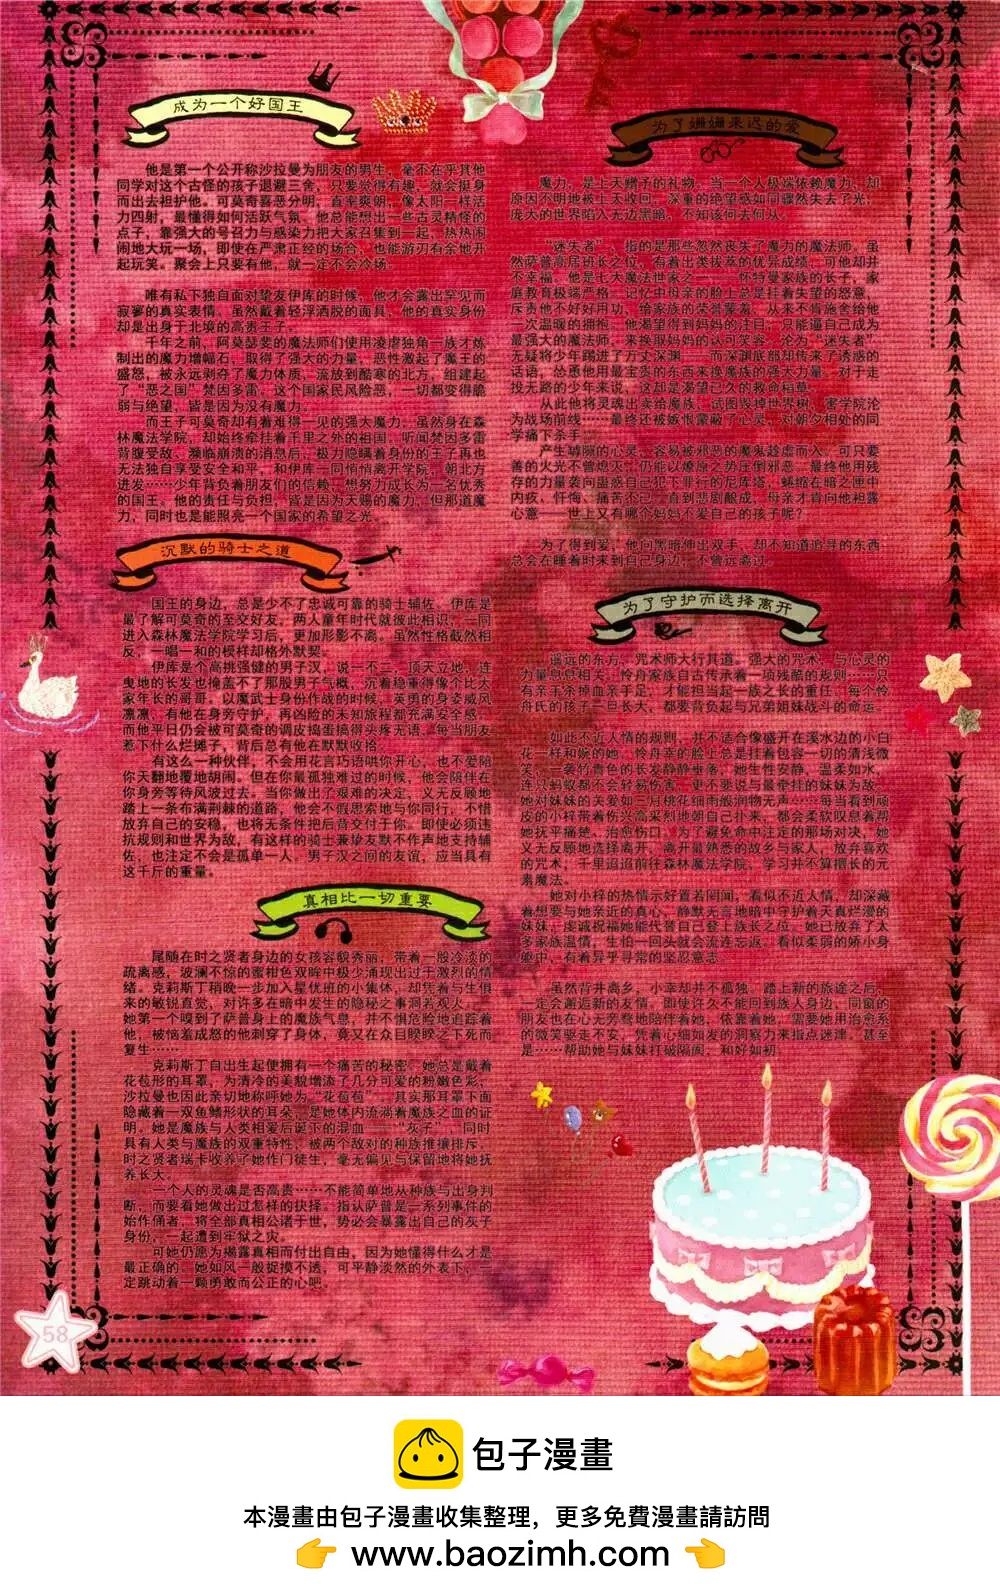 成为一个好国王
他是第一个公开称沙拉曼为朋友的男生，毫不在乎其他
同学对这个古怪的孩子退避三舍，只要觉得有趣，就会挺身
而出去袒护他。可莫奇喜恶分明，直率爽朗，像太阳一样活
力四射，最懂得如何活跃气氛。他总能想出一些古灵精怪的
点子，靠强大的号召力与感染力把大家召集到一起，热热闹
闹地大玩一场，即使在严肃正经的场合，也能游刃有余地开
起玩笑。聚会上只要有他，就一定不会冷场。
唯有私下独自面对挚友伊库的时候，他才会露出罕见而
寂寥的真实表情。虽然戴着轻浮洒脱的面具，他的真实身份
却是出身于北境的高贵王子。
千年之前，阿莫瑟斐的魔法师们使用凌虐独角一族才炼
制出的魔力增幅石，取得了强大的力量，恶性激起了魔王的
盛怒，被永远剥夺了魔力体质，流放到酷寒的北方，组建起
了“恶之国”梵因多雷。这个国家民风险恶，一切都变得脆
弱与绝望，皆是因为没有魔力。
而王子可莫奇却有着难得一见的强大魔力，虽然身在森
林魔法学院，却始终牵挂着千里之外的祖国。听闻梵因多雷
背腹受敌、濒临崩溃的消息后，极力隐瞒着身份的王子再也
无法独自享受安全和平，和伊库一同悄悄离开学院，朝北方
进发……少年背负着朋友们的信赖，想努力成长为一名优秀
的国王。他的责任与负担，皆是因为天赐的魔力，但那道魔
力，同时也是能照亮一个国家的希望之光。
沉默的骑士之道
国王的身边，总是少不了忠诚可靠的骑士辅佐。伊库是
最了解可莫奇的至交好友，两人童年时代就彼此相识，一同
进入森林魔法学院学习后，更加形影不离。虽然性格截然相
反，一唱一和的模样却格外默契。
伊库是个高挑强健的男子汉，说一不二，顶天立地，连
曳地的长发也掩盖不了那股男子气概，沉着稳重得像个比大
家年长的哥哥。以魔武士身份作战的时候，英勇的身姿威风
凛凛，有他在身旁守护，再凶险的未知旅程都充满安全感。
而他平日仍会被可莫奇的调皮捣蛋搞得头疼无语，每当朋友
惹下什么烂摊子，背后总有他在默默收拾。
有这么一种伙伴，不会用花言巧语哄你开心，也不爱陪
你天翻地覆地胡闹。但在你最孤独难过的时候，他会陪伴在
你身旁等待风波过去。当你做出了艰难的决定，义无反顾地
踏上一条布满荆棘的道路，他会不假思索地与你同行，不惜
放弃自己的安稳，也将无条件把后背交付于你。即使必须违
抗规则和世界为敌，有这样的骑士兼挚友默不作声地支持辅
佐，也注定不会是孤单一人。男子汉之间的友谊，应当具有
这千斤的重量。
真相比一切重要
尾随在时之贤者身边的女孩容貌秀丽，带着一股冷淡的
疏离感，波澜不惊的蜜柑色双眸中极少涌现出过于激烈的情
绪。克莉斯丁稍晚一步加入星优班的小集体，却凭着与生俱
来的敏锐直觉，对许多在暗中发生的隐秘之事洞若观火。
她第一个嗅到了萨普身上的魔族气息，并不惧危险地追踪着
他，被恼羞成怒的他刺穿了身体，竟又在众目睽睽之下死而
复生……
克莉斯丁自出生起便拥有一个痛苦的秘密。她总是戴着
花苞形的耳罩，为清冷的美貌增添了几分可爱的粉嫩色彩，
沙拉曼也因此亲切地称呼她为“花苞苞”。其实那耳罩下面
隐藏着一双鱼鳍形状的耳朵，是她体内流淌着魔族之血的证
明。她是魔族与人类相爱后诞下的混血——“灰子”，同时
具有人类与魔族的双重特性，被两个敌对的种族推攘排斥，
时之贤者瑞卡收养了她作门徒生，毫无偏见与保留地将她抚
养长大。
一个人的灵魂是否高贵……不能简单地从种族与出身判
断，而要看她做出过怎样的抉择。指认萨普是一系列事件的
始作俑者，将全部真相公诸于世，势必会暴露出自己的灰子
身份，一起遭到牢狱之灾。
可她仍愿为揭露真相而付出自由，因为她懂得什么才是
最正确的。她如风一般捉摸不透，可平静淡然的外表下，一
定跳动着一颗勇敢而公正的心吧。
为了姗姗来迟的爱
魔力，是上天赠予的礼物。当一个人极端依赖魔力，却
原因不明地被上天收回，深重的绝望感如同骤然失去了光，
庞大的世界陷入无边黑暗，不知该何去何从。
“迷失者”，指的是那些忽然丧失了魔力的魔法师。虽
然萨普高居班长之位，有着出类拔萃的优异成绩，可他却并
不幸福。他是七大魔法世家之一——怀特曼家族的长子，家
庭教育极端严格。记忆中母亲的脸上总是挂着失望的怒意，
斥责他不好好用功，给家族的荣誉蒙羞，从来不肯施舍给他
一次温暖的拥抱。他渴望得到妈妈的注目，只能逼自己成为
最强大的魔法师，来换取妈妈的认可笑容。沦为“迷失者”，
无疑将少年踢进了万丈深渊——而深渊底部却传来了诱惑的
话语，怂恿他用最宝贵的东西来换魔族的强大力量。对于走
投无路的少年来说，这却是渴望已久的救命稻草。
从此他将灵魂出卖给魔族，试图毁掉世界树、害学院沦
为战场前线……最终还被嫉恨蒙蔽了心灵，对朝夕相处的同
学痛下杀手。
产生嘘隙的心灵，容易被邪恶的魔鬼趁虚而入。可只要
善的火光不曾熄灭，仍能以燎原之势压倒邪恶。最终他用残
存的力量袭向蛊惑自己犯下罪行的尼库塔，蜷缩在暗之匣中
内疚、忏悔、痛苦不已。直到悲剧酿成，母亲才肯向他袒露
心意——世上又有哪个妈妈不爱自己的孩子呢？
为了得到爱，他向黑暗伸出双手，却不知道追寻的东西
总会在睡着时来到自己身边，不曾远离过。
为了守护而选择离开
遥远的东方，咒术师大行其道。强大的咒术，与心灵的
力量息息相关。怜舟家族自古传承着一项残酷的规则……只
有亲手杀掉血亲手足，才能担当起一族之长的重任。每个怜
舟氏的孩子一旦长大，都要背负起与兄弟姐妹战斗的命运。
如此不近人情的规则，并不适合像盛开在溪水边的小白
花一样和婉的她。怜舟幸的脸上总是挂着包容一切的清浅微
笑，一袭竹青色的长发静静垂落，她生性安静，温柔如水，
连只蚂蚁都不会轻易伤害，更不要说与最牵挂的妹妹为敌。
她对妹妹的关爱如三月桃花细雨般润物无声……每当看到顽
皮的小梓带着伤兴高采烈地朝自己扑来，都会柔软叹息着帮
她抚平痛楚、治愈伤口。为了避免命中注定的那场对决，她
义无反顾地选择离开，离开最熟悉的故乡与家人，放弃喜欢
的咒术，千里迢迢前往森林魔法学院，学习并不算擅长的元
素魔法。
她对小梓的热情示好置若罔闻，看似不近人情，却深藏
着想要与她亲近的真心，静默无言地暗中守护着天真烂漫的
妹妹，虔诚祝福她能代替自己登上族长之位。她已放弃了太
多家族温情，生怕一回头就会流连忘返。看似柔弱的娇小身
躯中，有着异乎寻常的坚忍意志。
虽然背井离乡，小幸却并不孤独。踏上新的旅途之后，
一定会邂逅新的友情。即使许久不能回到族人身边，同窗的
朋友也在心无旁骛地陪伴着她、依靠着她，需要她用治愈系
的微笑驱走不安，凭着心细如发的洞察力来指点迷津。甚至
是……帮助她与妹妹打破隔阂，和好如初。
58
包子漫畫
本漫畫由包子漫畫收集整理，更多免費漫畫請訪問
www.baozimh.com